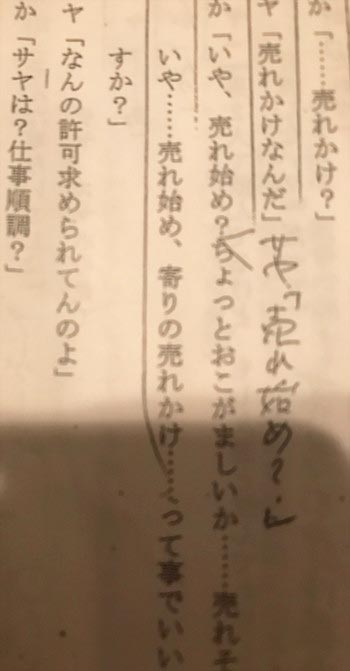 か「……売れかけ？」
ヤ「売れかけなんだ」サヤ「売れ始め？」
か「いや、売れ始め？ちょっとおこがましいか……売れそ
いや……売れ始め、寄りの売れかけ……って事でいい
すか？」
ヤ「なんの許可求められてんのよ」
か「サヤは？仕事順調？」